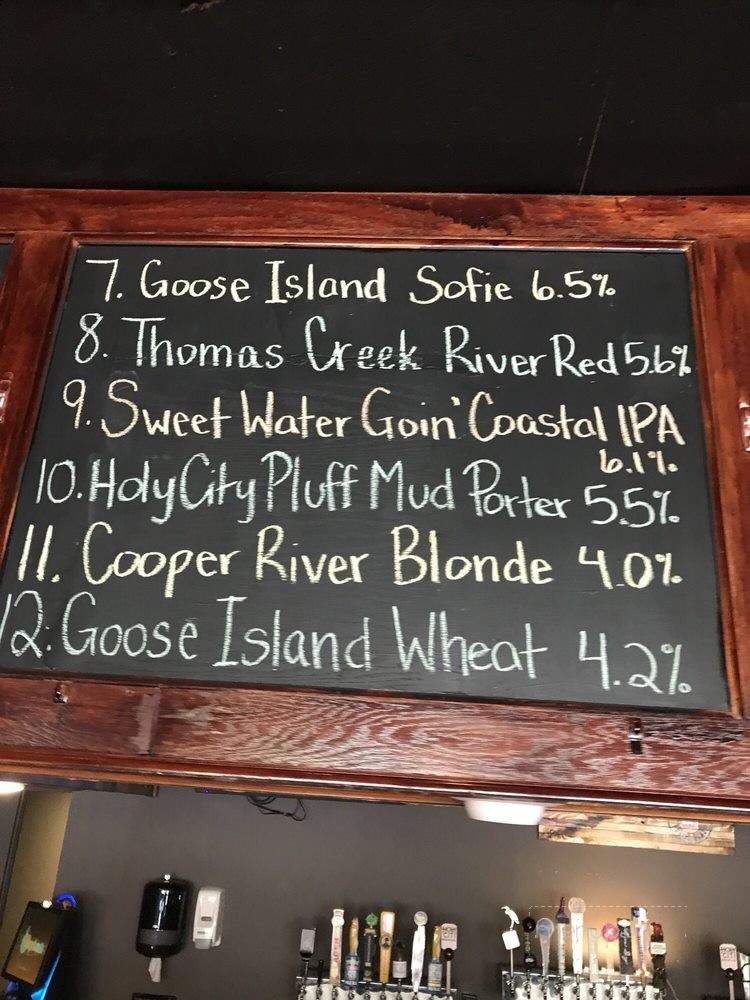 7. Goose Island Sofie 6.5%
8. Thomas Creek River Red 5.6%
9. Sweet Water Goin' Coastal IPA
6.1%
10. Holy City Pluff Mud Porter 5.5%
11. Cooper River Blonde 4.0%
12. Goose Island Wheat 4.2%